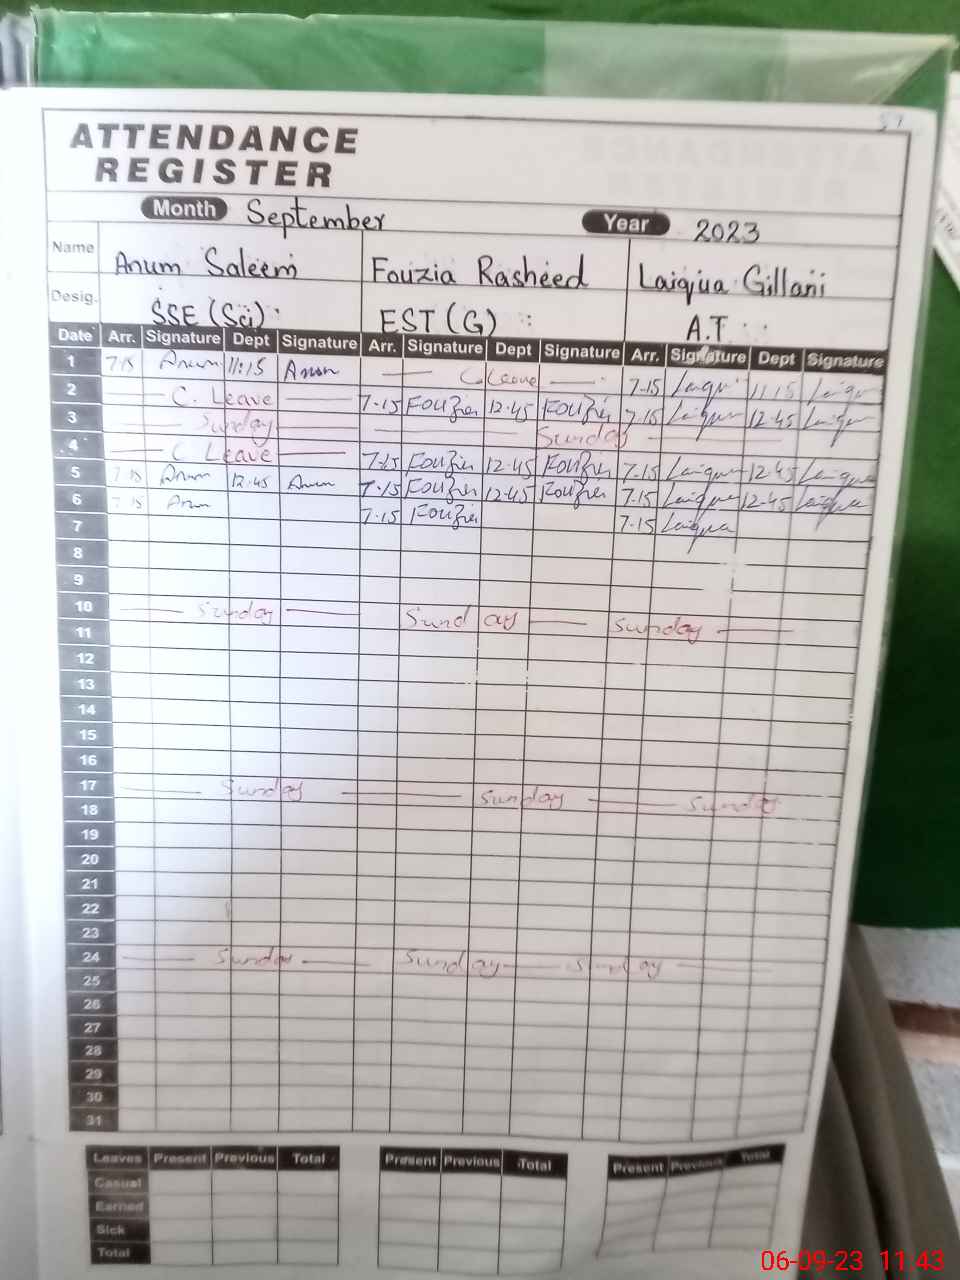 ATTENDANCE
REGISTER
Month September Year 2023
Name Anum Saleem Fouzia Rasheed Laiqua Gillani
Desig. SSE (Sci) EST (G) A.T.
Date Arr. Signature Dept Signature Arr. Signature Dept Signature Arr. Signature Dept Signature
1 7-15 Anum 11:15 Anum C. Leave 7-15 Laiqua 11-15 Laiqua
2 C. Leave 7-15 Fouzia 12-45 Fouzia 7-15 Laiqua 12-45 Laiqua
3 Sunday Sunday
4 C Leave 7-15 Fouzia 12-45 Fouzia 7-15 Laiqua 12-45 Laiqua
5 7-15 Anum 12-45 Anum 7-15 Fouzia 12-45 Fouzia 7-15 Laiqua 12-45 Laiqua
6 7-15 Anum 7-15 Fouzia 7-15 Laiqua
7
8
9
10 Sunday Sunday Sunday
11
12
13
14
15
16
17 Sunday Sunday Sunday
18
19
20
21
22
23
24 Sunday Sunday Sunday
25
26
27
28
29
30
31
Leaves Present Previous Total Present Previous Total Present Previous Total
Casual
Earned
Sick
Total
06-09-23 11:43